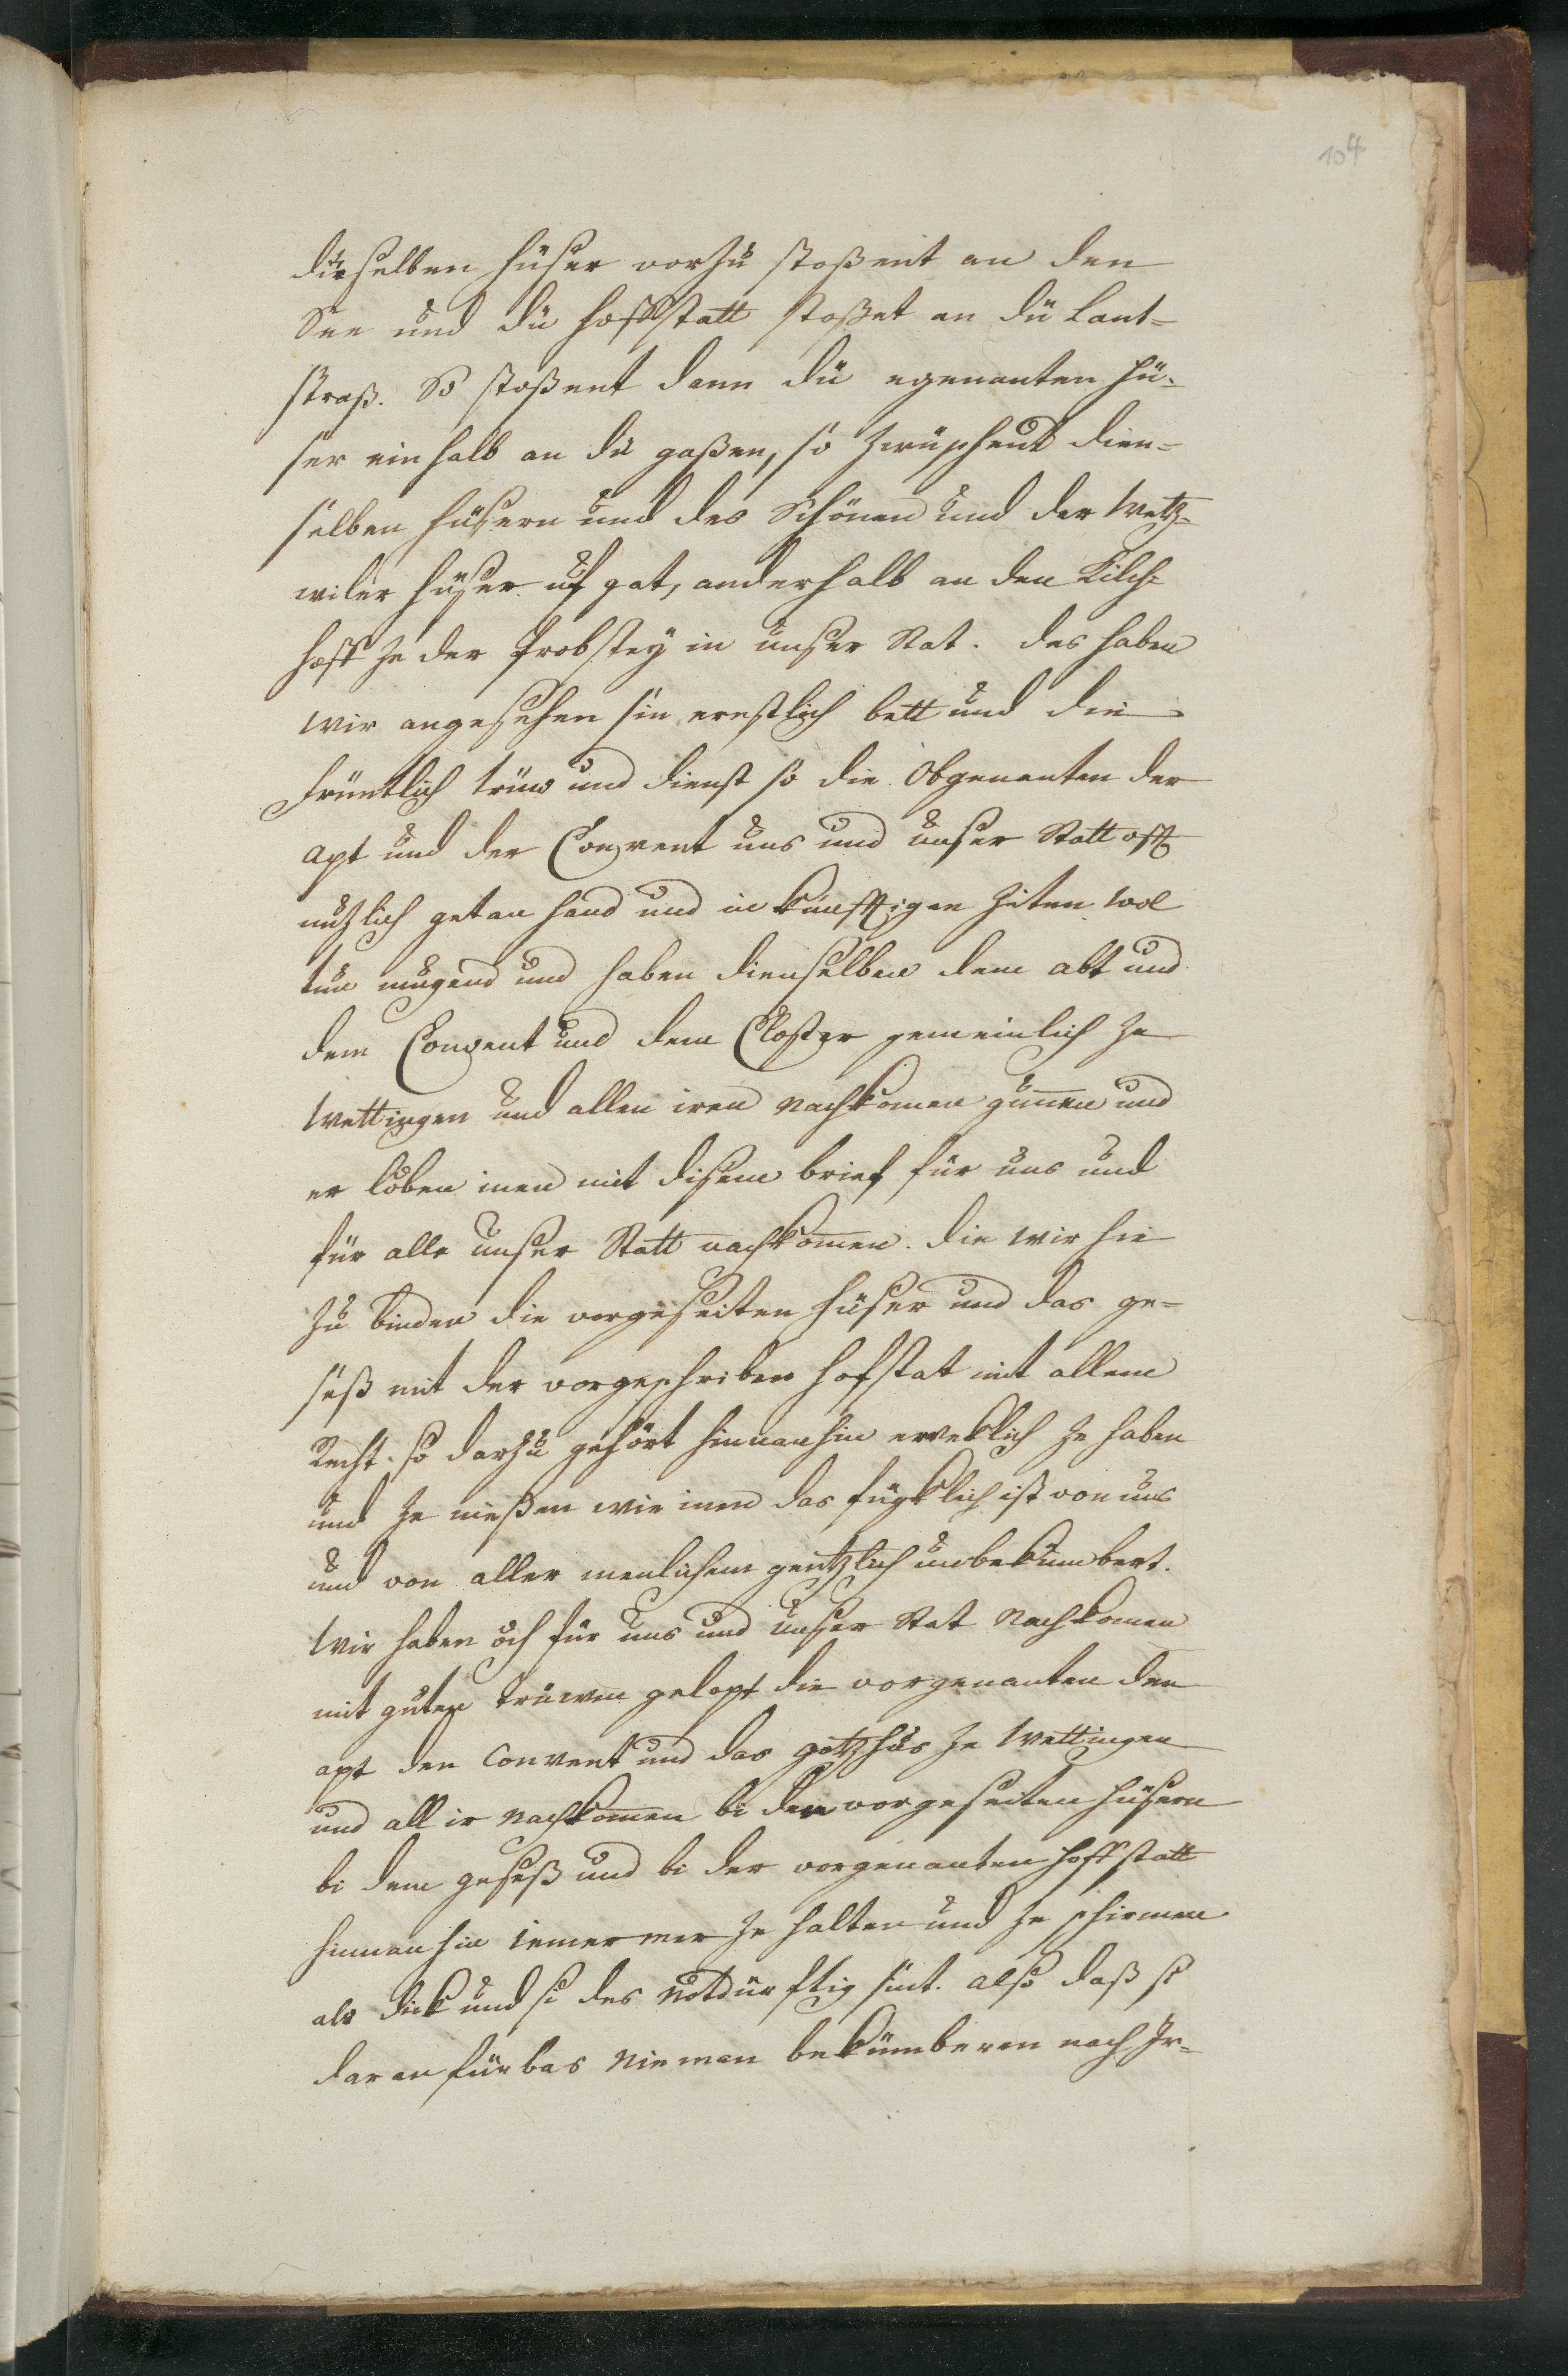 104
dieselben hüser vorzü stoßent an den
See und dü hoffstatt stoßet an dü Lant-
straß. So stoßent dann dü egenanten hü-
ser einhalb an dü gaßen, so zwüschend dien-
selben hüsern und des Schönen und der Wetz-
wiler hüser uf gat, anderhalb an den Kilch-
hoff ze der Probstey in unser Stat. des haben
wir angesehen sin ernstlich bett und die
früntlich trüw und dienst so die Obgenanten der
apt und der Convent uns und unser Statt offt
nutzlich getan hand und in künfftigen Ziten wol
tun mugend und haben dienselben dem abt und
dem Convent und dem Closter gemeinlich ze
Wettingen und allen iren Nachkomen gunnen und
er loben inen mit disem brief für uns und
für alle unser Statt nachkommen. die wir hie
zü binden die vorgeseiten hüser und das ge-
säß mit der vorgeschriben hofstat mit allem
Recht. so darzü gehört hinnanhin eweklich ze haben
und ze nießen wie inen das fügklich ist von uns
und von aller menlichem gentzlich unbekümbert.
Wir haben och für uns und unser Stat Nachkomen
mit guten Trüwen gelopt die vorgenanten den
apt den Convent und das gotzhus ze Wettingen
und all ir Nachkommen bi den vorgeseiten hüsern
bi dem geseß und bi der vorgenanten hoffstatt
hinnanhin iemer mer ze halten und ze schirmen
als dick und si des notdürftig sint. also daß si
daran fürbas nieman bekümberen noch Ir-